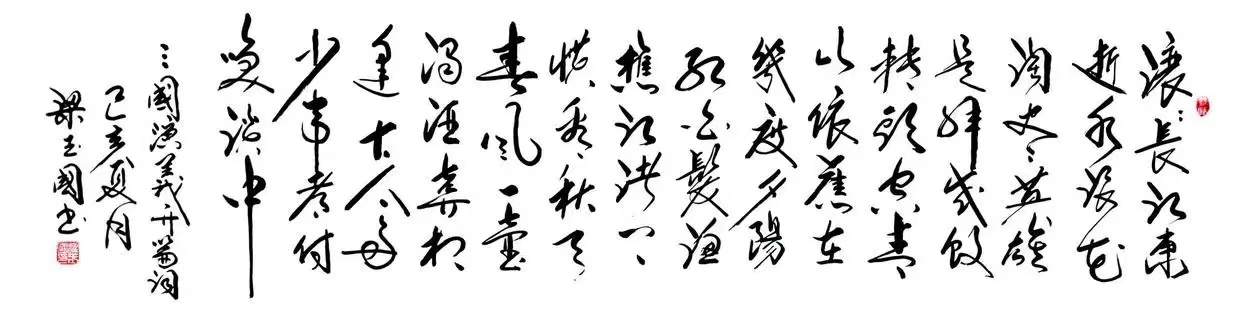 滚〻長江東
逝水浪花
淘尽英雄
是非成敗
转頭空青
山依舊在
幾度夕陽
紅白髮漁
樵江渚上
惯看秋月
春風一壺
濁酒喜相
逢古今多
少事都付
笑談中
三國演義开篇詞
己亥夏月
梁玉國书